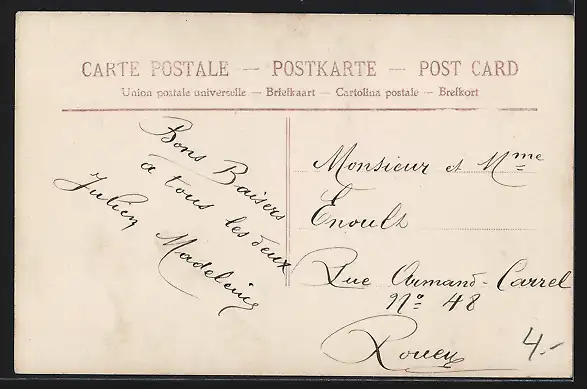 CARTE POSTALE — POSTKARTE — POST CARD
Union postale universelle — Briefkaart — Cartolina postale — Brefkort
Bons Baisers
à tous les deux
Julien Madeleine
Monsieur et Mme
Enoult
Rue Armand-Carrel
No 48
Rouen
4.-